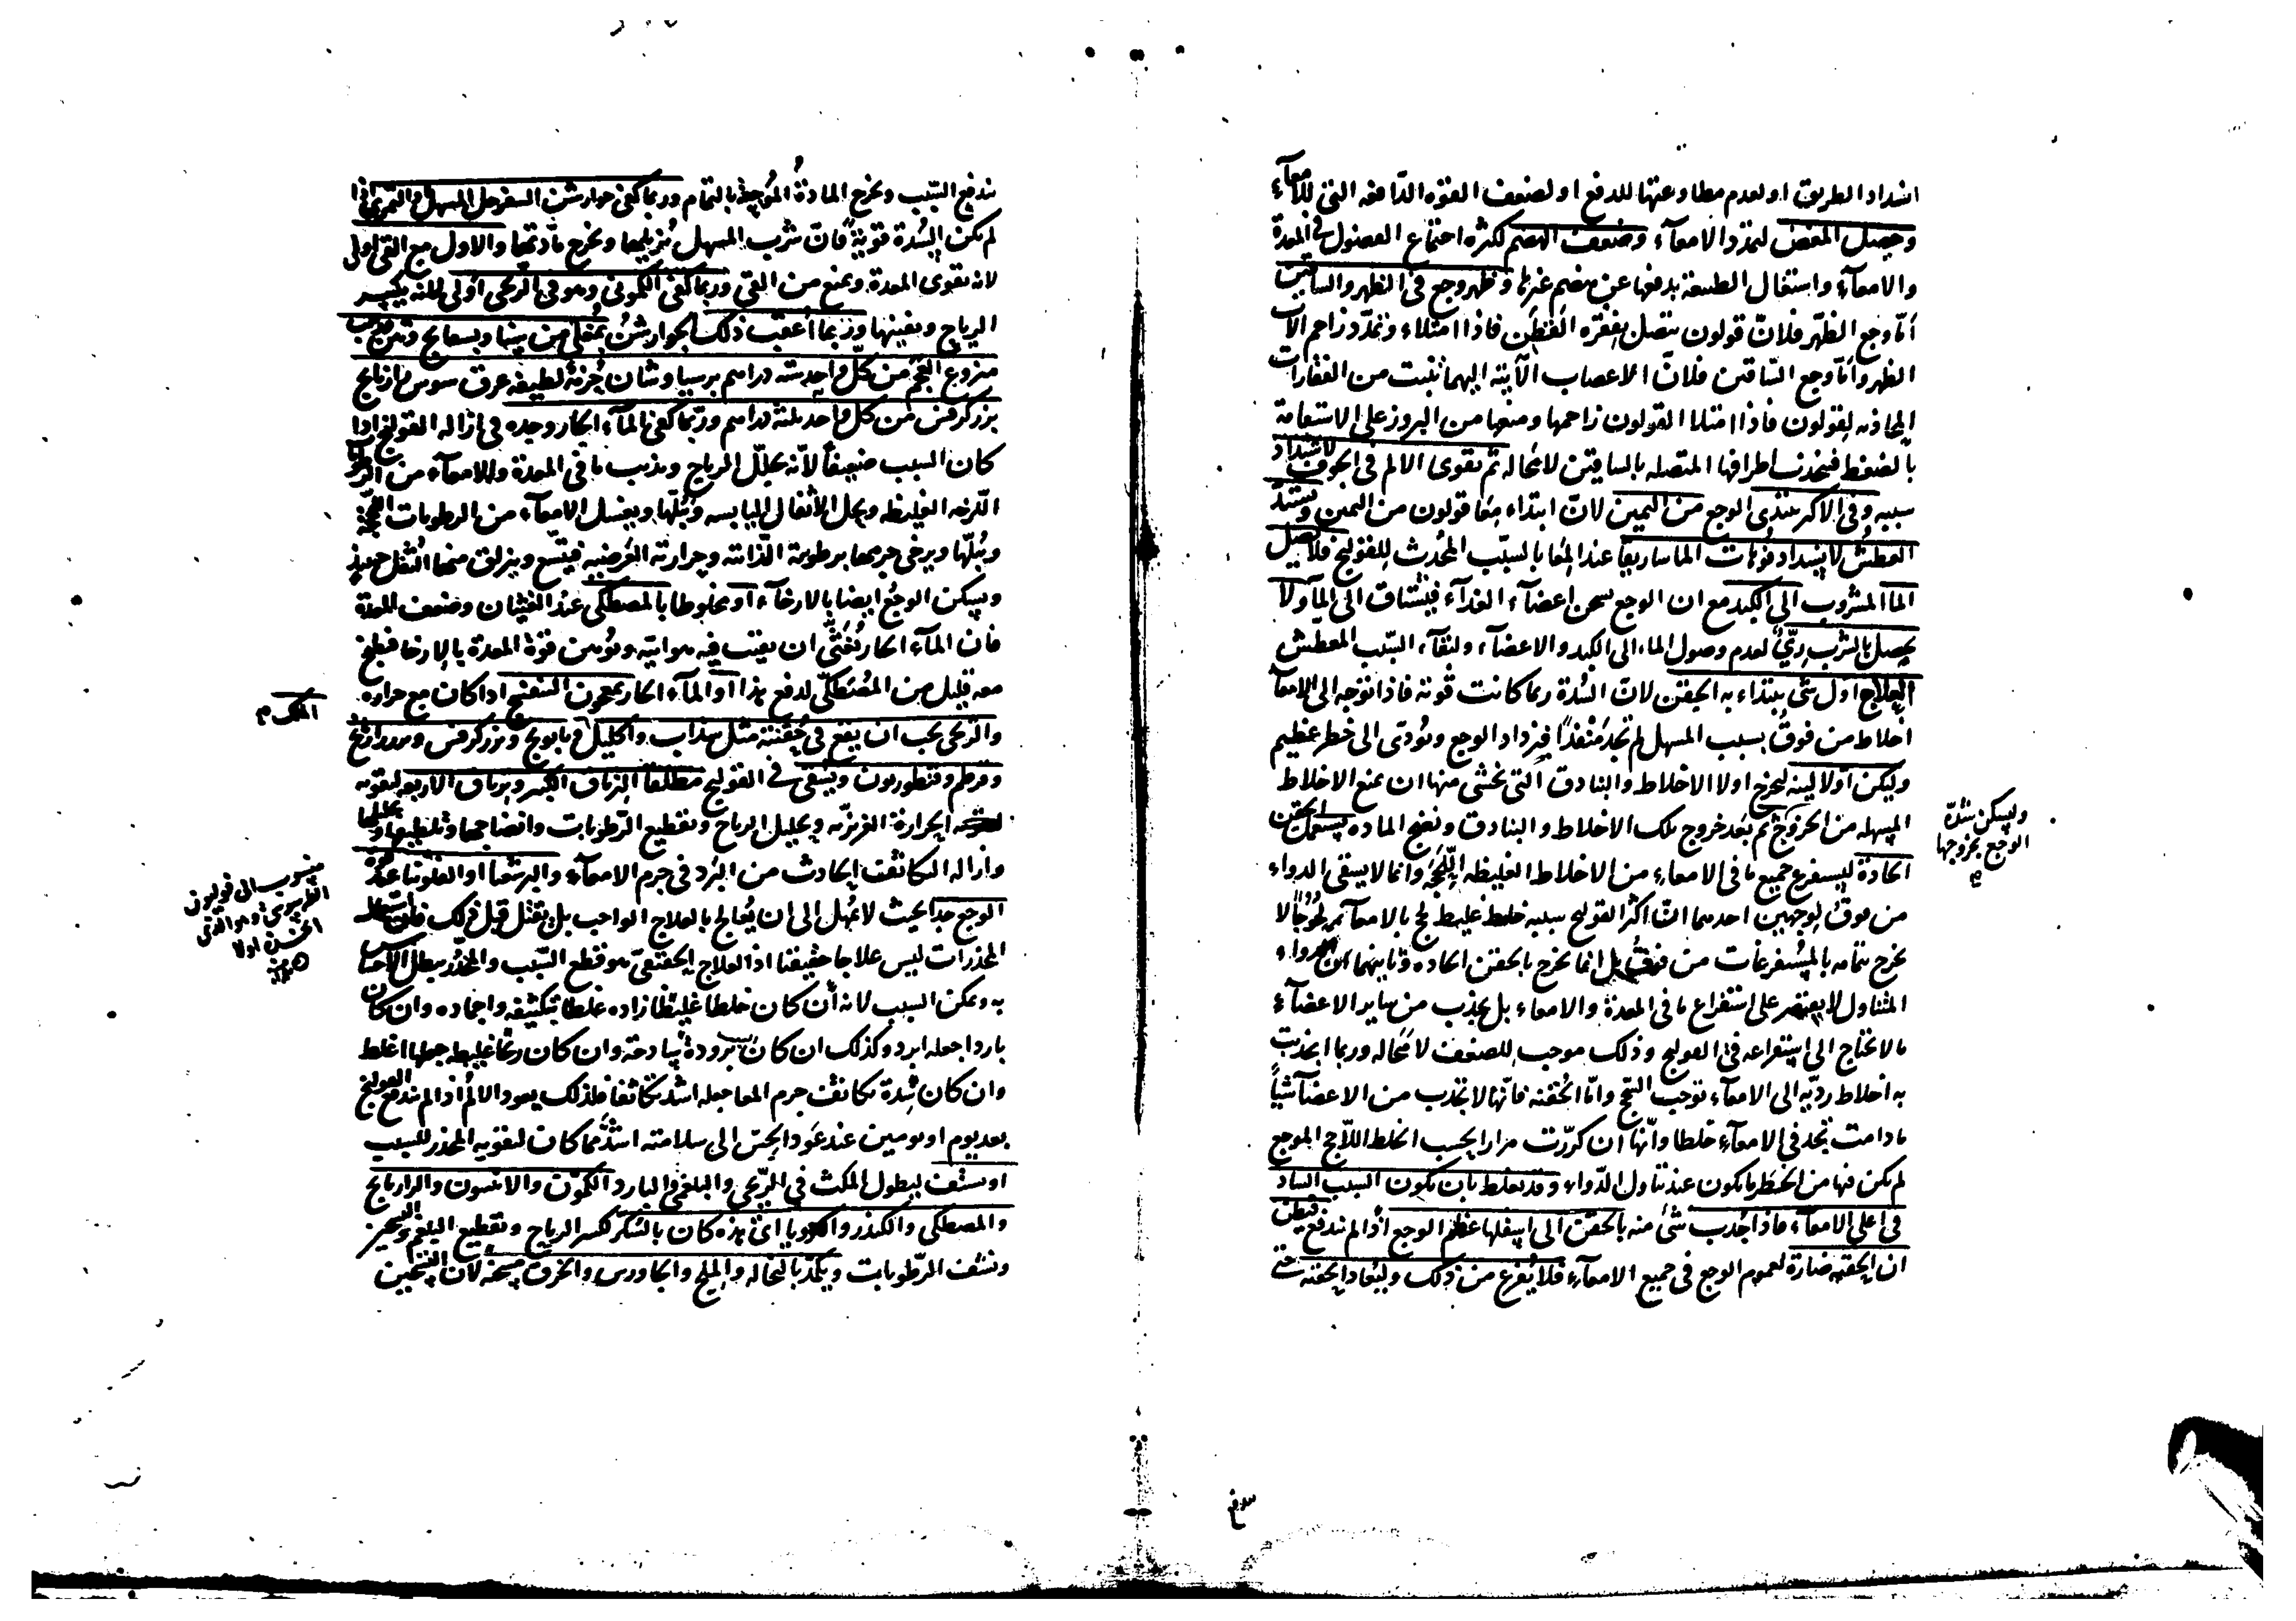 انسداد الطريق او لعدم مطاوعتها للدفع او لضعف القوه الدافعه التى للامعآء
وحصل المغص لتمدد الامعآء وضعف الهضم لكثره اجتماع الفضول فى المعدة
والامعآء واشتغال الطبيعة بدفعها عن هضم غيرها وظهر وجع فى الظهر والساقين
أمّا وجع الظهر فلانّ قولون متصل بفقره القطن فاذا امتلاء وتمدّد زاحم الات
الظهر وامّا وجع الساقين فلانّ الاعصاب الآتية اليهما تنبت من الفقارات
المحاذيه لقولون فاذا امتلا القولون زاحمها ومنعها من البروز على الاستقامة
بالضغط فيتمدد اطرافها المتصله بالساقين لا محاله ثم يقوى الالم فى الجوف لاشتداد
سببه وفى الاكثر يبتدى الوجع من اليمين لانّ ابتداء معا قولون من اليمين ويشتدّ
العطش لانسداد فوهات الماساريقا عند المعا بالسبب المحدث للقولنج فلا يصل
الما المشروب الى الكبد مع ان الوجع يسخن اعضآء الغذآء فيشتاق الى المآ ولا
يحصل بالشرب رىّ لعدم وصول الماء الى الكبد والاعضاء ولبقآء السبب المعطش
العلاج اول شئ يبتداء به الحقن لانّ السُدة ربما كانت قوية فاذا توجه الى الامعآ
اخلاط من فوق بسبب المسهل لم تجد مَنْفذًا فيزداد الوجع ويؤدّى الى خطر عظيم
وليكن اولا لينه ليخرج اولا الاخلاط والبنادق التى يخشى منها ان يمنع الاخلاط
المسهله من الخروج ثم بعد خروج تلك الاخلاط والبنادق ونضج الماده يستعمل الحقن
الحادة ليستفرغ جميع ما فى الامعاء من الاخلاط الغليظه اللّحجه وانما لا يسقى الدواء
من فوق لوجهين احدهما انّ اكثر القولنج سببه خلط غليظ لحج بالامعآء لحوجًا لا
يخرج بتمامه بالمستفرغات من فوق بل انما يخرج بالحقن الحاده وثانيهما انّ الدواء
المتناول لا يقتصر على استفراغ ما فى المعدة والامعاء بل يجذب من ساير الاعضآء
ما لا يحتاج الى استفراغه فى القولنج وذلك موجب للضعف لا محاله وربما انجذبت
به اخلاط رديّه الى الامعآء توجب السحج وامّا الحقنه فانّها لا تجذب من الاعضآ شيأً
ما دامت تجد فى الامعآء خلطا وانّها ان كررّت مرارا بحسب الخلط اللّاحج الموجع
لم يكن فيها من الخطر ما يكون عند تناول الدّواء وقد يغلط بان يكون السبب الساد
فى اعلى الامعآء فاذا جُذب شئ منه بالحقن الى اسفلها عظم الوجع اذا لم يندفع فيظن
ان الحقنه ضارة لعموم الوجع فى جميع الامعآء فلا يُفزع من ذلك وليُعاد الحقنه حتى
وليسكن شدّة
الوجع بخروجها
م
يندفع السّبب ويخرج المادة الموجعة بالتمام وربما كفى جوارشن السفرجل المسهل والتمرى اذا
لم يكن السُدة قويّة فانّ شرب المسهل يُزيلها ويخرج مادتها والاول مع القى اولى
لانه يقوى المعدة ويمنع من القى وربما كفى الكمونى وهو فى الريحى اولى لانه يكسر
الرياح ويفنيها وربما اعقب ذلك الجوارشن بمغلى من سنا وبسفايج وزبيب
منزوع العجم من كل واحد ستة دراهم برسياوشان جُرزة لطيفه عرق سوس رازيانج
بزر كرفس من كل واحد ثلثة دراهم وربّما كفى المآء الحار وحده فى ازاله القولنج اذا
كان السبب ضعيفا لأنّه يحلّل الرياح ويذيب ما فى المعدة والامعآء من الرطوبات
اللّزجه الغليظه ويحل الأثفال اليابسه ويَبُلّها ويغسل الامعآء من الرطوبات اللّحجة
ويُبلّها ويرخى جرمها برطوبته الذّاتيه وحرارته العَرضيه فيتّسع وينزلق منها الثفل حينئذ
ويسكن الوجع ايضا بالارخآء او مخلوطا بالمصطكى عند الغثيان وضعف المعدة
فان المآء الحار يُغَثّى ان بقيت فيه هوائيّه ويُوهن قوّة المعدة بالارخا فطبخ
معه قليل من المُصْطكى لدفع هذا او المآء الحار بمعجون البنفسج اذا كان مع حراره
والريحى يجب ان يقع فى حُقنته مثل سذاب واكليل وبابونج وبزر كرفس وبزر رازيانج
وقرطم وقنطوريون ويسقى فى القولنج مطلقا الترياق الكبير وترياق الاربعه لتقويه
الحرارة الغريزيّه وتحليل الرياح وتقطيع الرّطوبات وانضاجها وتلطيفها وتحليلها
وازاله التكاثف الحادث من البَرد فى جرم الامعآء والبرشعثا او الفلونيا عند شدّة
الوجع جدا بحيث لا يُمهل الى ان يُعالج بالعلاج الواجب بل يقتل قبل ذلك فان استعمال
المخدرات ليس علاجا حقيقيا اذ العلاج الحقيقىّ هو قطع السّبب والمخدّر يبطل الاحساس
به ويمكن السبب لانه أن كان خلطا غليظا زاده غلظا بتكثيفه واجماده وان كان
باردا جعله ابرد وكذلك ان كان سببه برودة ساذجة وان كان ريحًا غليظه جعلها اغلظ
وان كان شدة تكاثف جرم المعا جعله اشد تكاثفا فلذلك يعود الالم اذ لم يندفع القولنج
بعد يوم او يومين عند عَود الحِسّ الى سلامته اشدّ مما كان لتقويه المخدر للسبب
او يستف لبطول المكث فى الرّيحى والبلغمى البارد الكمّون والانيسون والرازيانج
والمصطكى والكندر والكرويا اىّ هذه كان بالسُكر لكسر الرياح وتقطيع البلغم والتسخين
ونشف الرّطوبات ويكمّد بالنخاله والملح والجاورس والخرق مسخنه لان التسخين
الملك م
منسوب الى فوليون
الطرسوسى وهو الذى
اخترعه اولا
منه